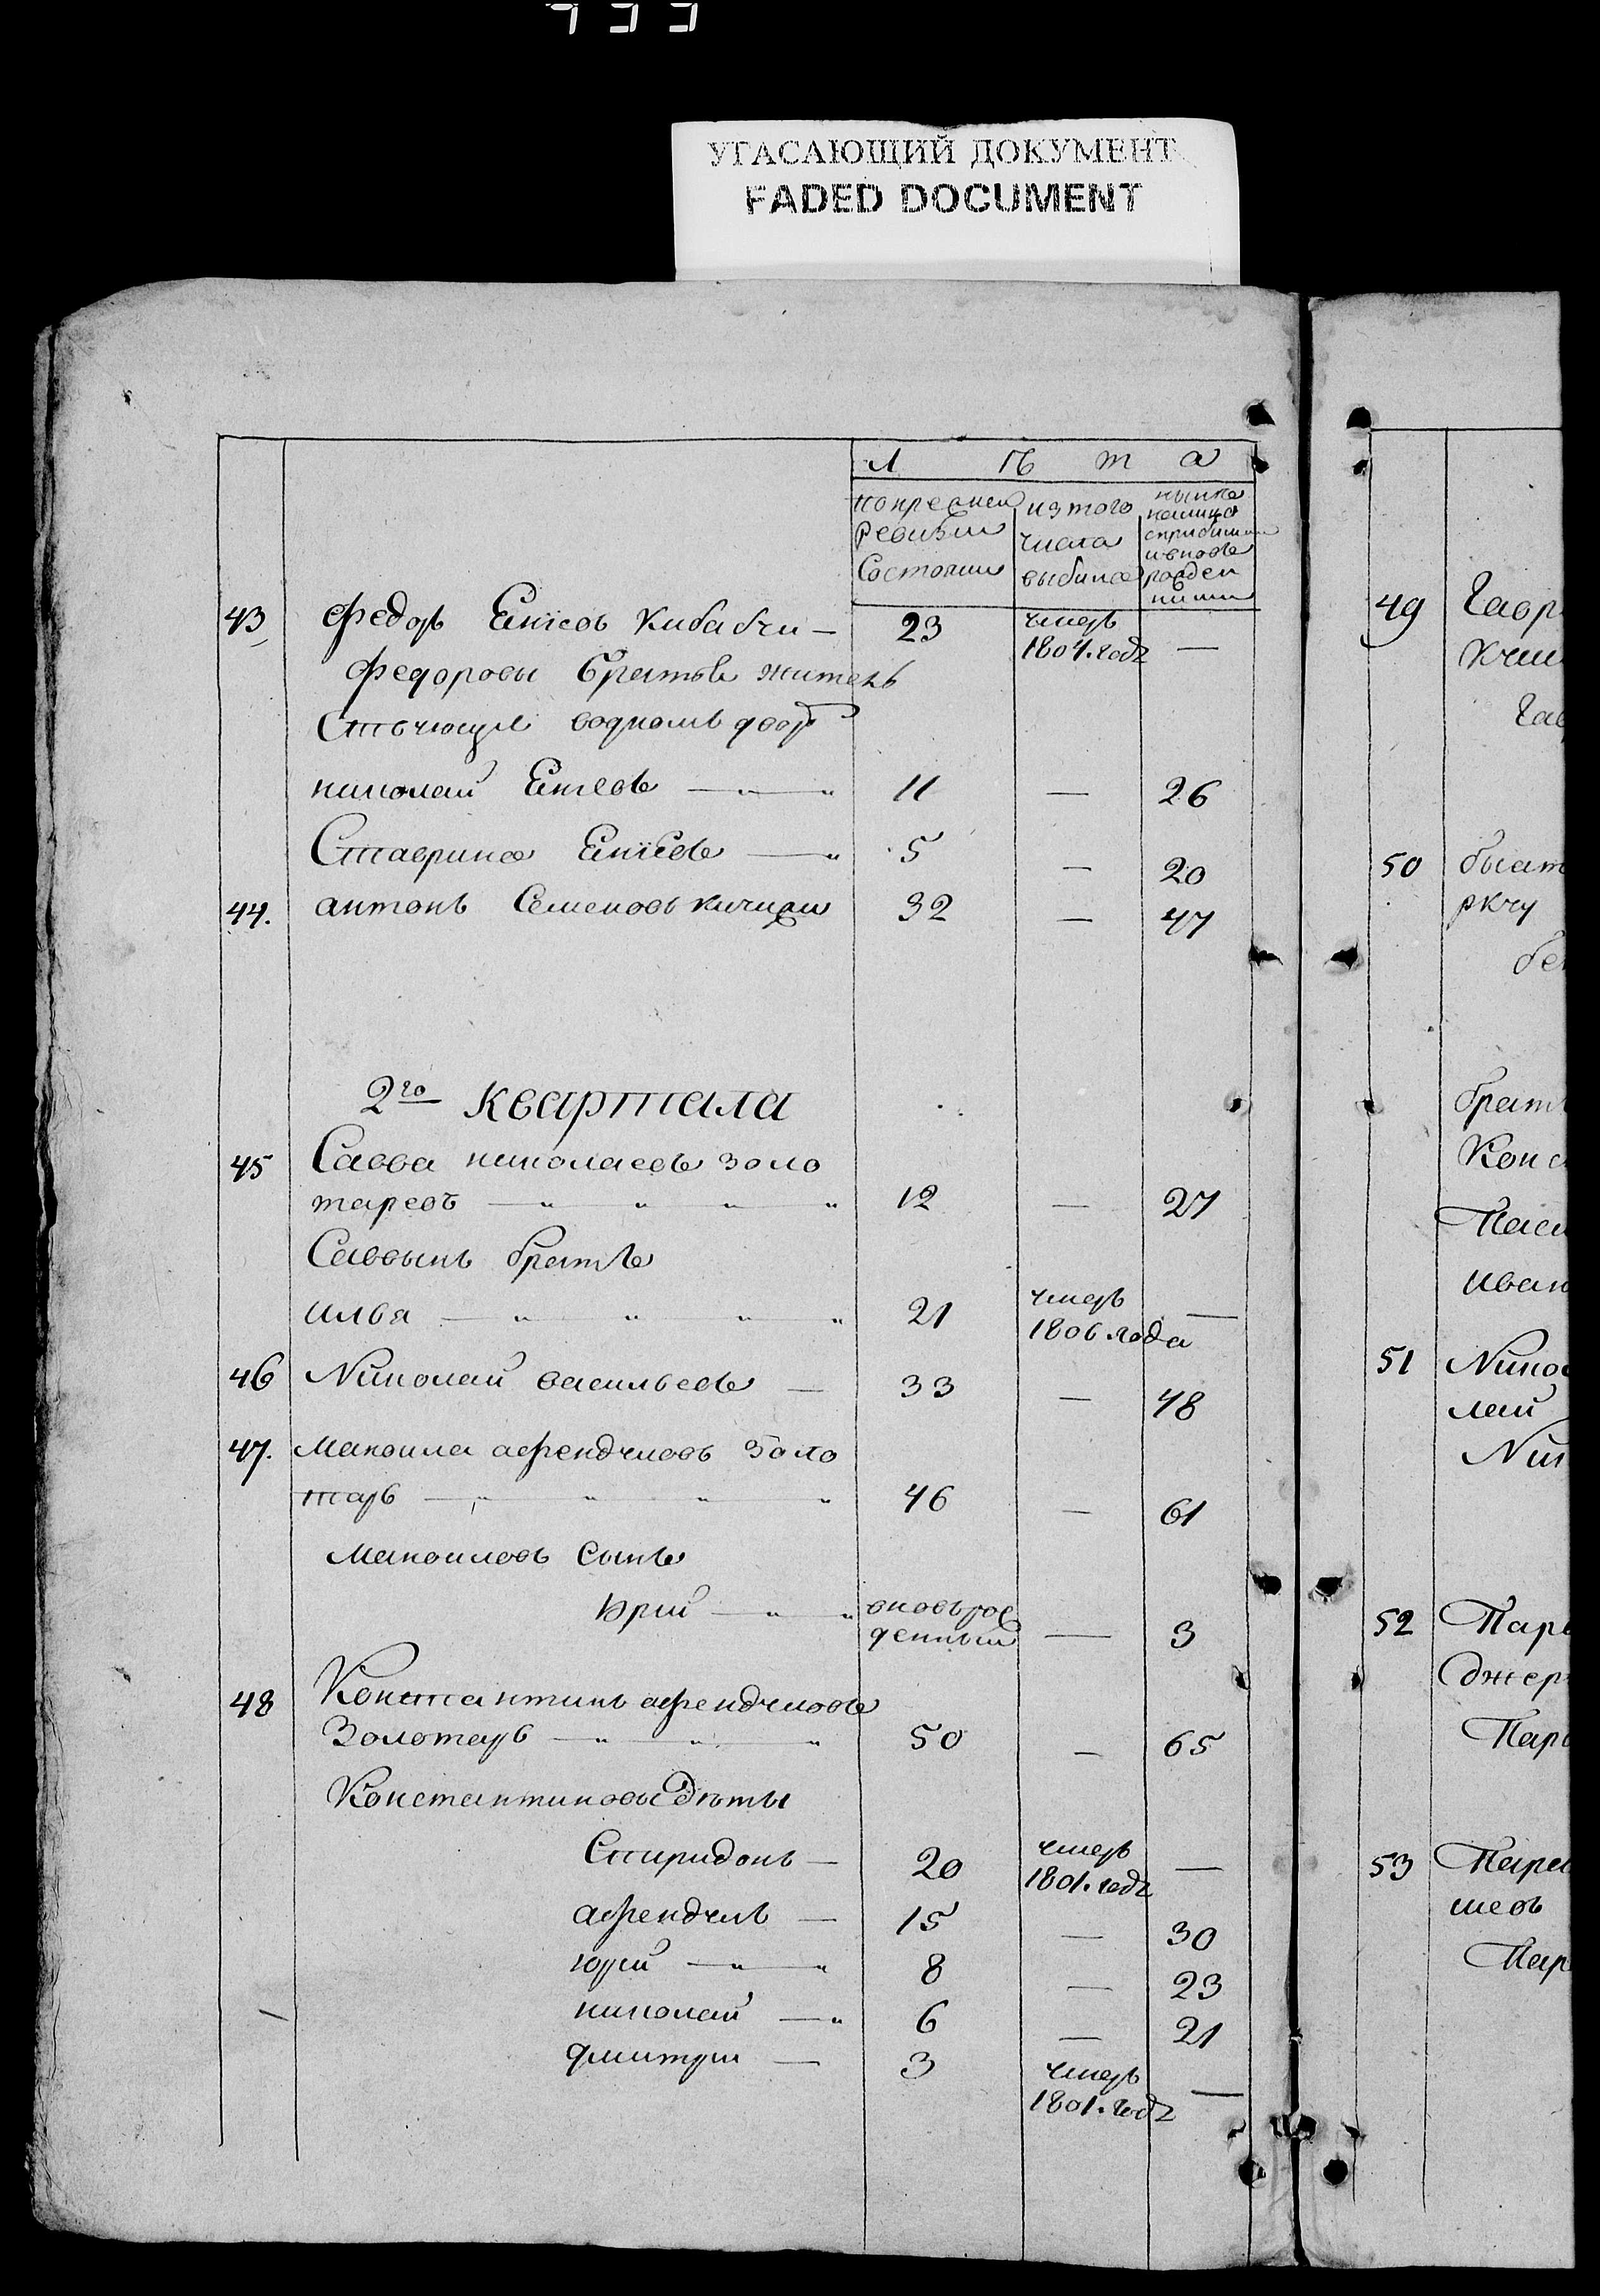 УГАСАЮЩИЙ ДОКУМЕНТ
FADED DOCUMENT
Л ѣ т а
по прежней ревизии состояли
из того числа выбыло
ныне налицо с прибылыми и вновь рожденными
43 Федоръ Еніевъ Кибабчи — 23 умеръ 1804. года —
Федоровы братья жител
ствующие водномъ дворѣ
николай Еніевъ — 11 — 26
Ставрина Еніевъ — 5 — 20
44. антонъ Семеновъ 32 — 47
2го квартала
45 Савва николаевъ золо
таревъ — 12 — 27
Саввынъ братъ
илья — 21 умеръ 1806 года —
46 Николай васильевъ — 33 — 48
47. Маноила афендчиовъ Золо
тарь — 46 — 61
Маноиловъ сынъ
Юрий — вновь рожденный — 3
48 Константинъ афендчиовъ
Золотарь — 50 — 65
Константиновы Дѣты
Спиридонъ — 20 умеръ 1801. года —
афендчиъ — 15 — 30
юрий — 8 — 23
николай — 6 — 21
дмитрий — 3 умеръ 1801. года —
49 Гавр
Гав
50
ркчу
брать
Конс
Иван
51 Никол
лай
Ник
52 Пара
джер
Пара
53 Пара
шевъ
Пар